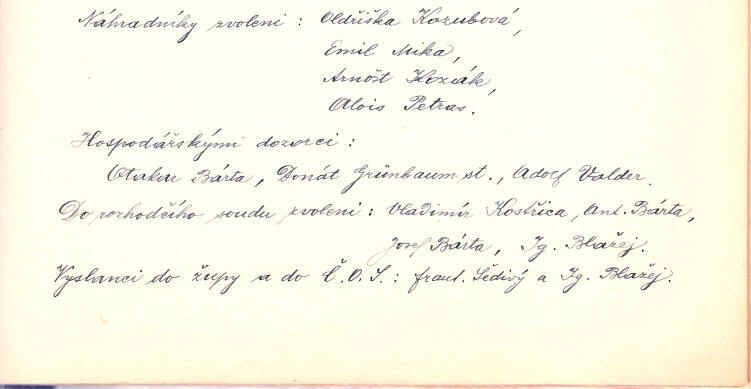 Náhradníky zvoleni : Oldřiška Kozubová,
Emil Mika,
Arnošt Koziák,
Alois Petras.
Hospodářskými dozorci :
Otakar Bárta, Donát Grünbaum st., Adolf Valder.
Do rozhodčího soudu zvoleni : Vladimír Kostřica, Ant. Bárta,
Josef Bárta, Ig. Blažej.
Vyslanci do župy a do Č.O.S. : frant. Šedivý a Ig. Blažej.